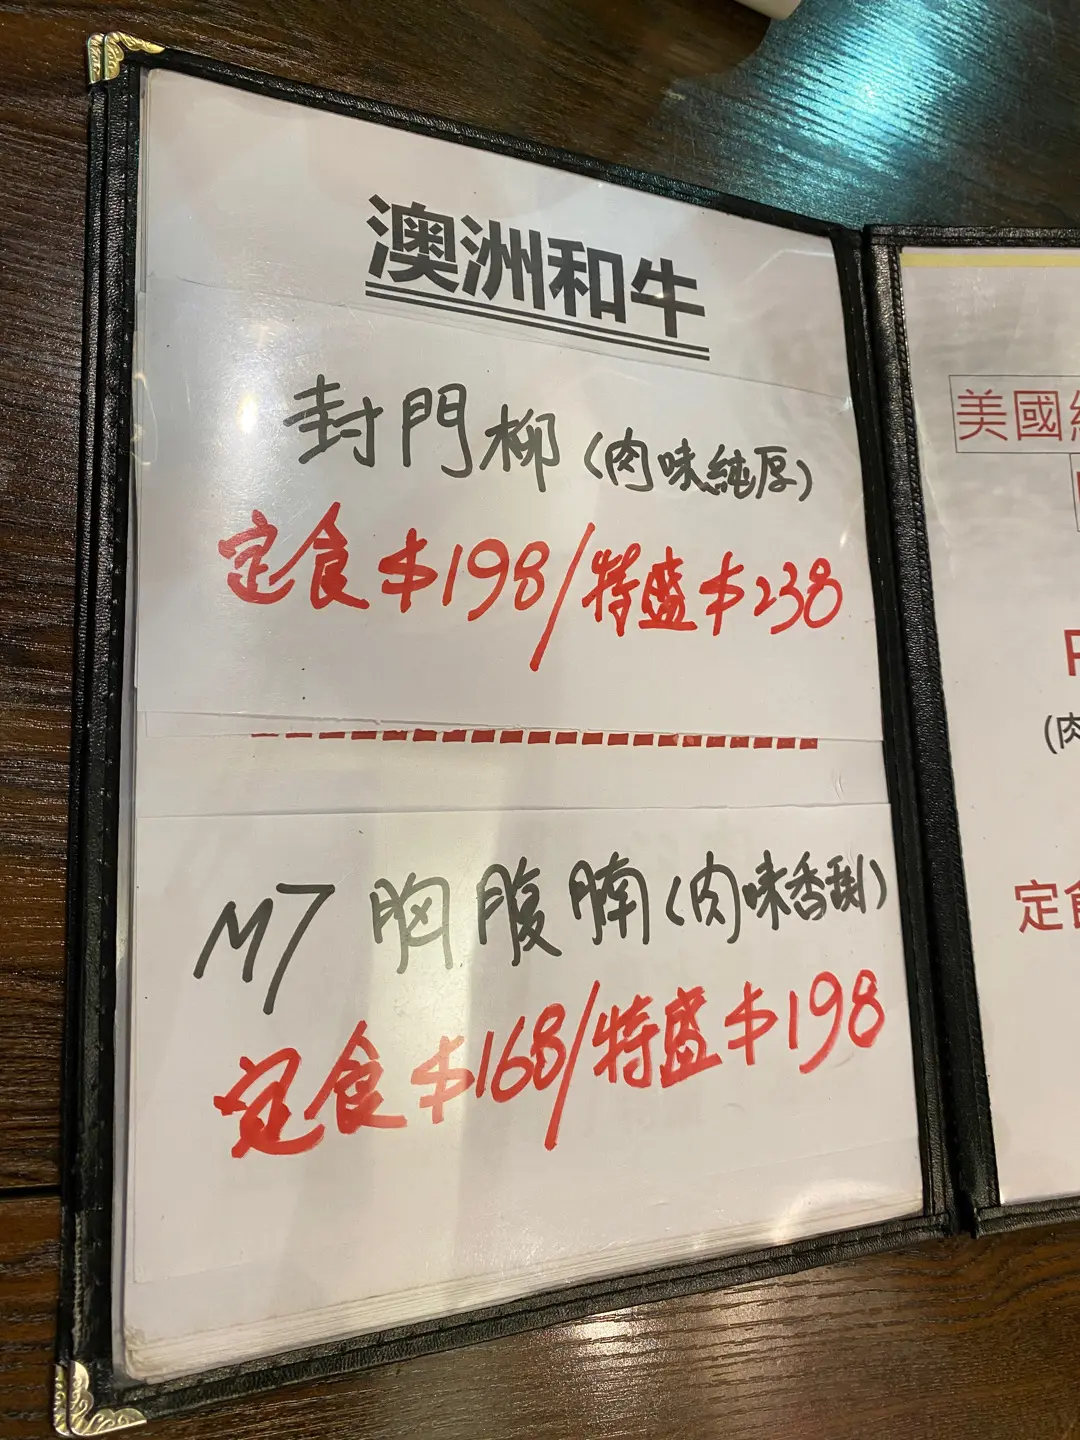 澳洲和牛
封門柳(肉味純厚)
定食$198/特盛$238
M7胸腹腩(肉味香甜)
定食$168/特盛$198
美國
(肉
定食